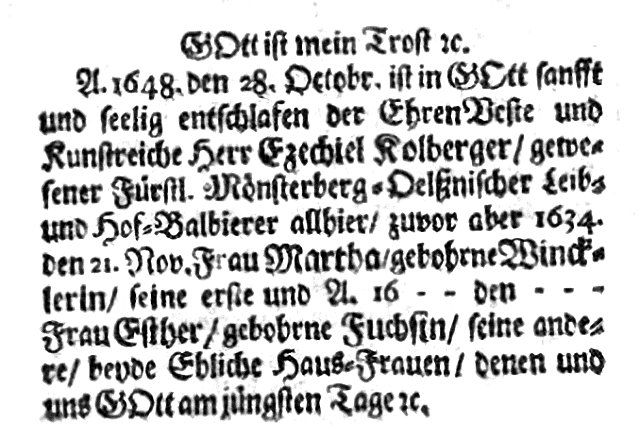 GOtt ist mein Trost ꝛc.
A. 1648. den 28. Octobr. ist in GOtt sanfft
und seelig entschlafen der EhrenVeste und
Kunstreiche Herr Ezechiel Kolberger/ gewe-
sener Fürstl. Mönsterberg-Oelßnischer Leib-
und Hof-Balbierer allhier/ zuvor aber 1634.
den 21. Nov. Frau Martha/ gebohrne Winck-
lerin/ seine erste und A. 16 - - den - - -
Frau Esther/ gebohrne Fuchsin/ seine ande-
re/ beyde Ehliche Haus-Frauen/ denen und
uns GOtt am jüngsten Tage ꝛc.